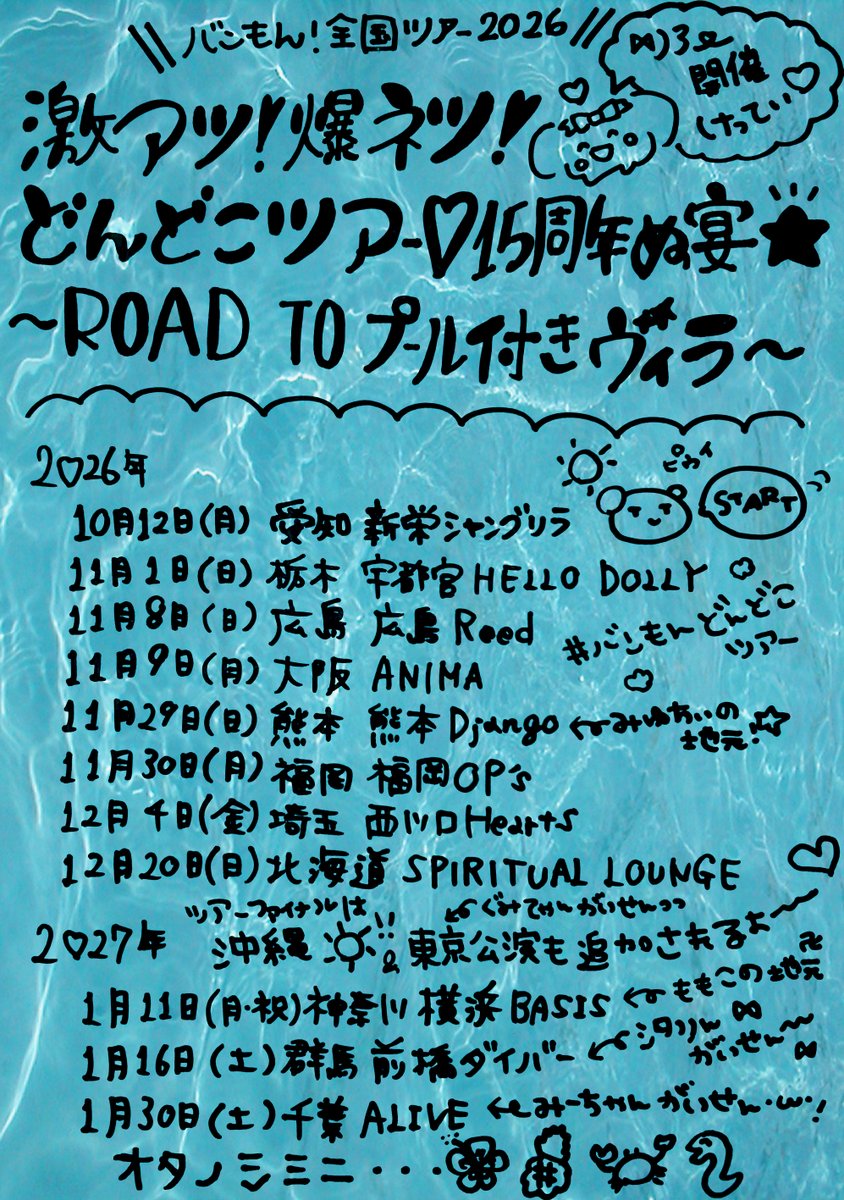 \\バンもん!全国ツアー2026//
開催
けってい♡
激アツ!爆ネツ!
どんどこツアー♡15周年ぬ宴★
~ROAD TO プール付きヴィラ~
2♡26年
ピカイ
START
10月12日(月) 愛知 新栄シャングリラ
11月1日(日) 栃木 宇都宮HELLO DOLLY
11月8日(日) 広島 広島Reed
#バンもんどんどこ
ツアー
11月9日(月) 大阪 ANIMA
11月29日(日) 熊本 熊本Django ←みゆちぃの
地元!☆
11月30日(月) 福岡 福岡OP's
12月4日(金) 埼玉 西川口Hearts
12月20日(日) 北海道 SPIRITUAL LOUNGE
ツアーファイナルは
←ぐみてゃんがいせんっっ
2♡27年 沖縄!! & 東京公演も追加されるよー
1月11日(月・祝) 神奈川 横浜BASIS ←ももこの地元
1月16日(土) 群馬 前橋ダイバー ←シタりん
がいせん〜
1月30日(土) 千葉 ALIVE ←みーちゃんがいせん・ω・!
オタノシミニ・・・